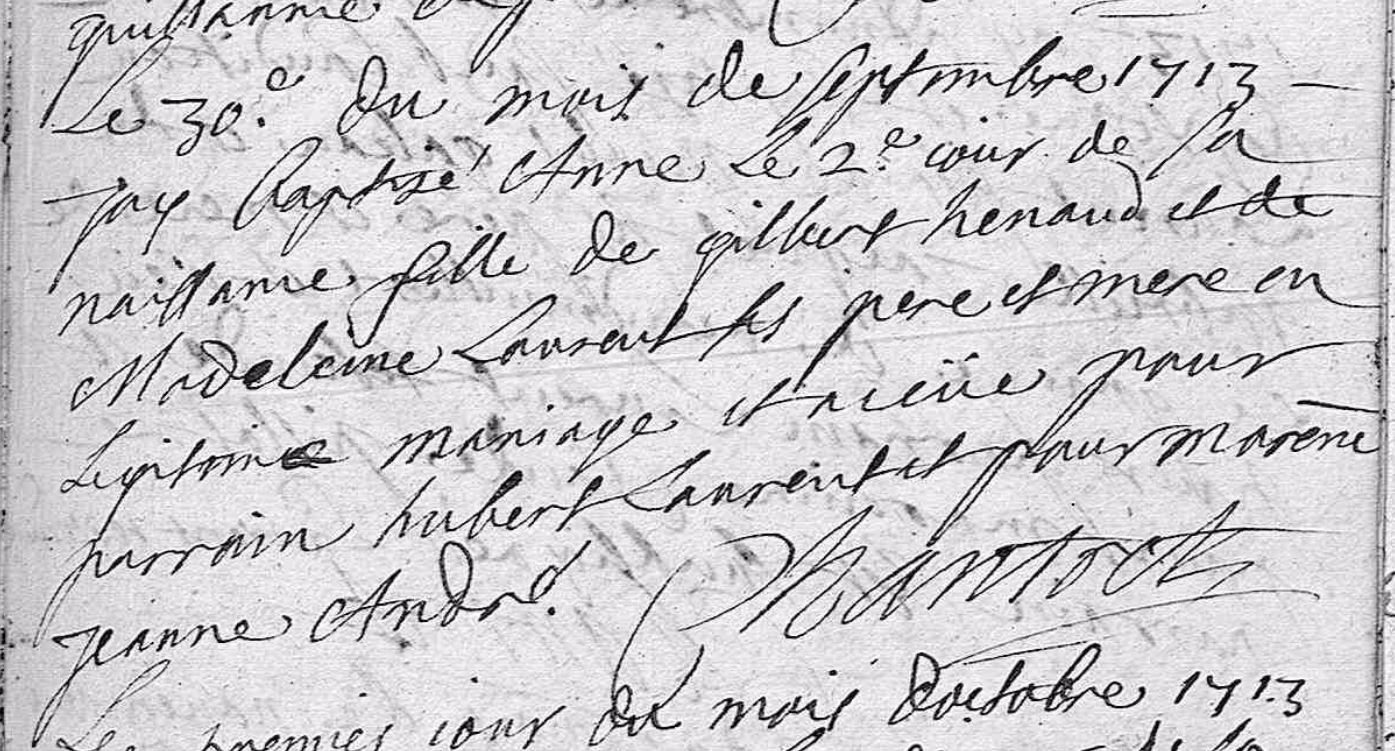 Le 30.e du mois de septembre 1713 –
jay baptizé Anne le 2.e jour de sa
naissance fille de gilbert henaud et de
Madeleine Laurent ses pere et mere en
legitime mariage et a eüe pour
parrain hubert Laurent et pour marène
jeanne André.
Le premier jour du mois doctobre 1713